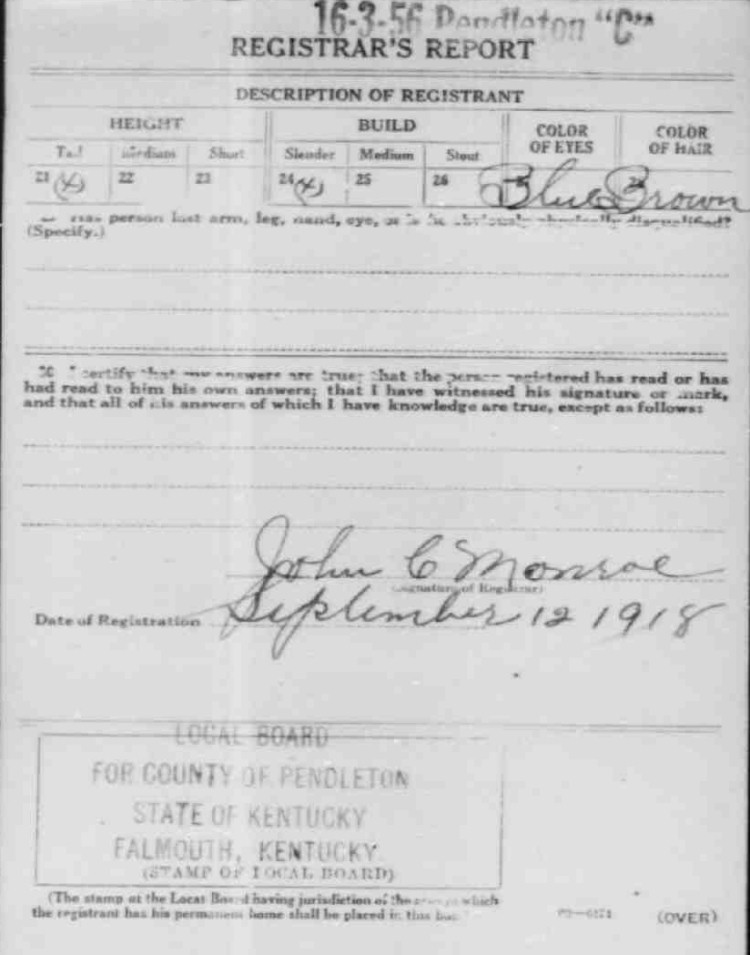 16-3-56 Pendleton "C"
REGISTRAR'S REPORT
DESCRIPTION OF REGISTRANT
HEIGHT BUILD COLOR OF EYES COLOR OF HAIR
Tall Medium Short Slender Medium Stout
21 (x) 22 23 24 (x) 25 26 Blue Brown
person lost arm, leg, hand, eye, or is he obviously physically disqualified?
(Specify.)
30 I certify that my answers are true; that the person registered has read or has
had read to him his own answers; that I have witnessed his signature or mark,
and that all of his answers of which I have knowledge are true, except as follows:
John C Monroe
(Signature of Registrar)
Date of Registration September 12 1918
LOCAL BOARD
FOR COUNTY OF PENDLETON
STATE OF KENTUCKY
FALMOUTH, KENTUCKY
(STAMP OF LOCAL BOARD)
(The stamp of the Local Board having jurisdiction of the which
the registrant has his permanent home shall be placed in this box.
(OVER)